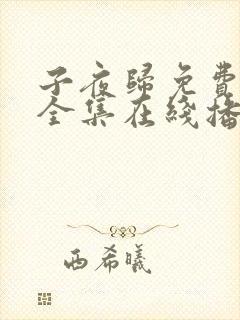 子夜歸免費
全集在綫播
西希曦